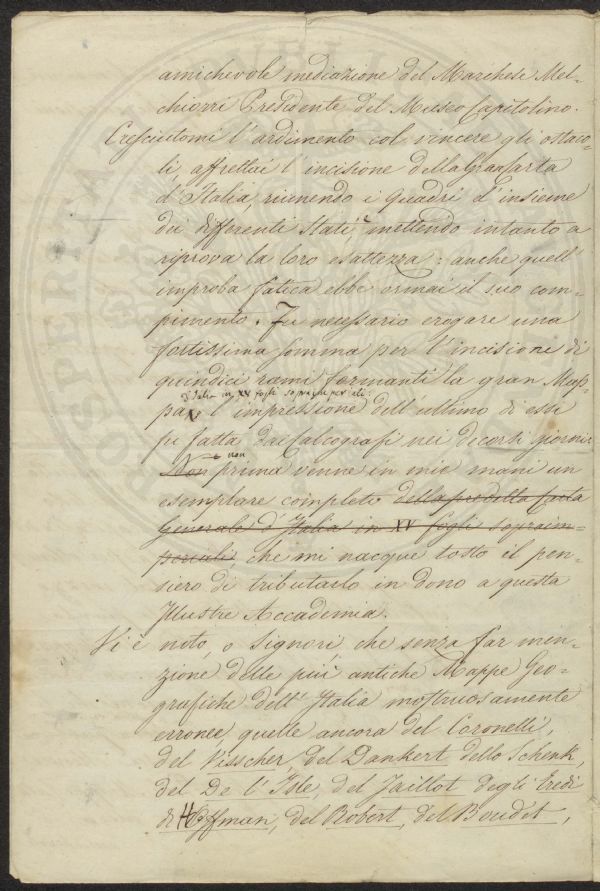 amichevole mediazione del Marchese Mel-
chiorri Presidente del Museo Capitolino.
Cresciutomi l'ardimento col vincere gli ostaco-
li, affrettai l'incisione della Gran Carta
d'Italia, riunendo i quadri d'insieme
dei differenti Stati, mettendo intanto a
riprova la loro esattezza: anche quell'
improba fatica ebbe ormai il suo com-
pimento. Fu necessario erogare una
fortissima somma per l'incisione di
quindici rami formanti la gran Map-
d'Italia in XV fogli sopraimperiali:
pa, l'impressione dell'ultimo di essi
fu fatta dai calcografi nei decorsi giorni.
Non non prima venne in mie mani un
esemplare completo della predetta carta
generale d'Italia in XV fogli sopraim-
periali, che mi nacque tosto il pen-
siero di tributarlo in dono a questa
Illustre Accademia.
Vi è noto, o Signori, che senza far men-
zione delle più antiche Mappe Geo-
grafiche dell'Italia mostruosamente
erronee, quelle ancora del Coronelli,
del Visscher, del Dankert, dello Schenk,
del De l'Isle, del Jaillot degli Eredi
di Hoffman, del Robert, del Boudet,